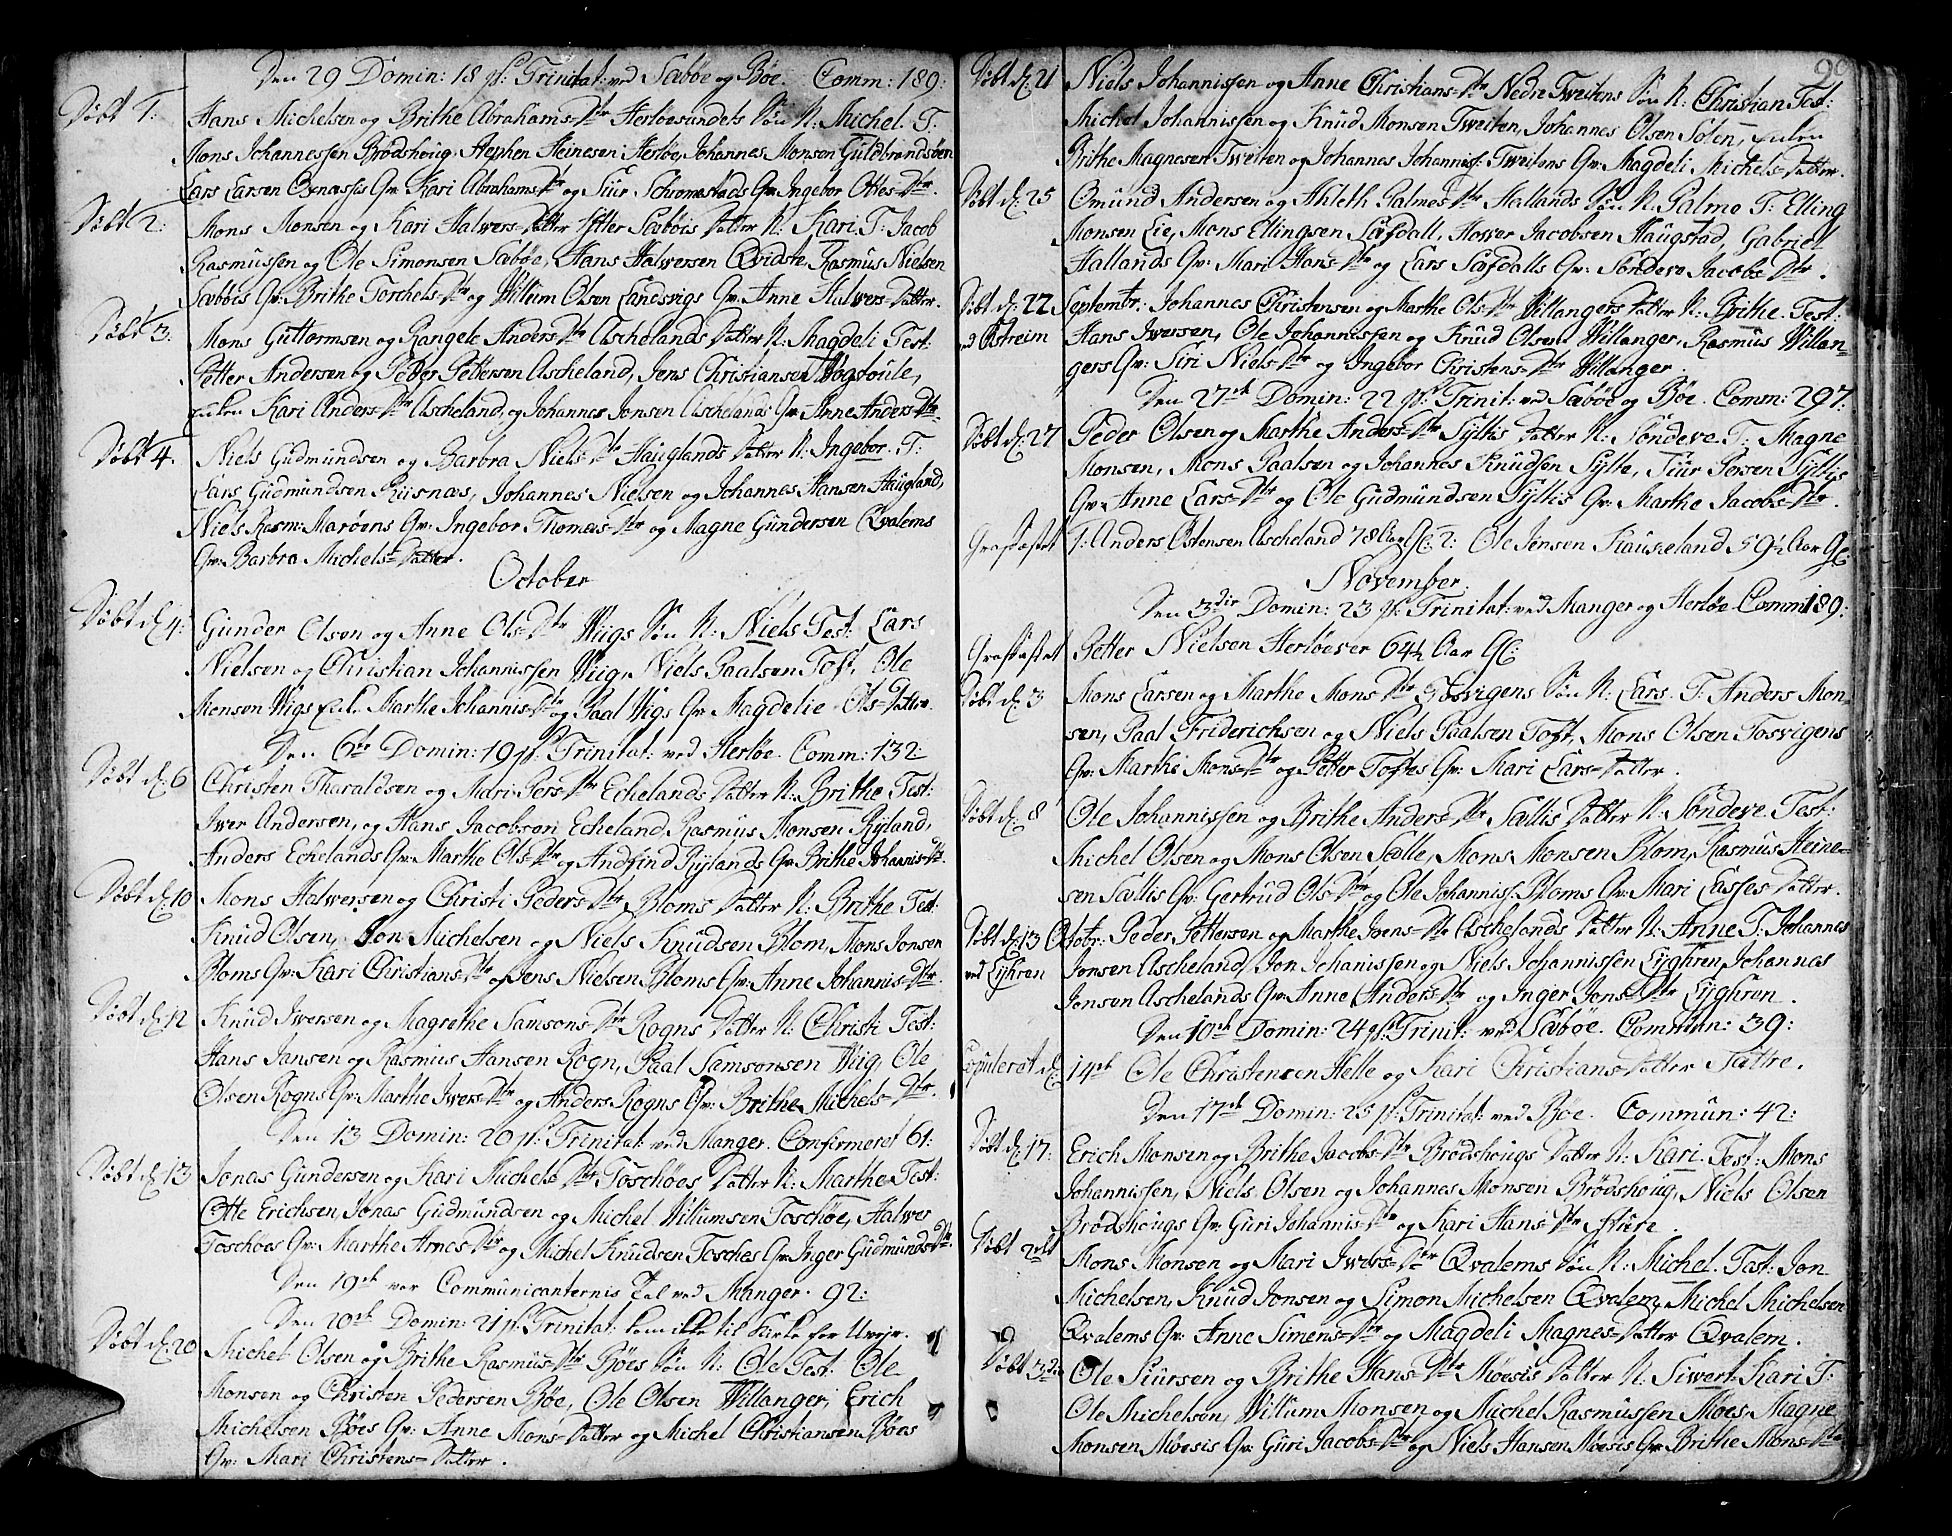 Den 29 Domin: 18 p: Trinitat: ved Sæbøe og Bøe. Comm: 189:
Døbt 1: Hans Michelsen og Brithe Abrahams-Dtr Herløesundets Søn N: Michel. T:
Mons Johannessen Brødshoug, Stephen Heinesen Herløe, Johannes Monsen Guldbrandsøen
Lars Larsen Oxnæsses Qv: Kari Abrahams-Dtr og Siur Schomestads Qv: Ingebor Ottes-Dtr.
Døbt 2: Mons Monsen og Kari Halvers-Datter Ytter Sæbøis Datter N: Kari. T: Jacob
Rasmussen og Ole Simonsen Sæbøe, Hans Halversen Qvidste, Rasmus Nielsen
Sæbøes Qv: Brithe Torchels-Dtr og Willum Olsen Landsvigs Qv: Anne Halvers-Datter.
Døbt 3: Mons Guttormsen og Rangele Anders-Dtr Aschelands Datter N: Magdeli Test:
Petter Andersen og Peder Pettersen Ascheland, Jens Christiansen
Kari Anders-Dtr Ascheland, og Johannes Jonsen Aschelands Qv: Anne Anders-Dtr
Døbt 4. Niels Gudmundsen og Barbra Niels-Dtr Hauglands Datter N: Ingebor. T:
Lars Gudmundsen Riisnæs, Johannes Nielsen og Johannes Hansen Haugland,
Niels Rasm: Marøens Qv: Ingebor Thomæs-Dtr og Magne Gundersen Qvalems
Qv: Barbra Michels-Datter.
October
Døbt d: 4: Gunder Olsen og Anne Ols-Dtr Wiigs Søn N: Niels Test: Lars
Nielsen og Christian Johannissen Wiig, Niels Paalsen Toft, Ole
Monsen Wigs Marthe Johannis-Dtr og Paal Wigs Qv: Magdelie Ols-Datter.
Den 6te Domin: 19 p: Trinitat: ved Herløe. Comm: 132:
Døbt d: 6 Christen Tharaldsen og Mari Pers-Dtr Echelands Datter N: Brithe Test:
Iver Andersen, og Hans Jacobsen Echeland, Rasmus Monsen Ryland,
Anders Echelands Qv: Marthe Ols-Dtr og Andfind Rylands Qv: Brithe Johannis-Dtr.
Døbt d: 10 Mons Halversen og Christi Peders-Dtr Bloms Datter N: Brithe Test:
Knud Olsen, Jon Michelsen og Niels Knudsen Blom, Mons Jonsen
Bloms Qv: Kari Christians-Dtr og Jens Nielsen Bloms Qv: Anne Johannis-Dtr.
Døbt d: 12 Knud Iversen og Magrethe Samsons-Dtr Rogns Datter N: Christi Test:
Hans Jansen og Rasmus Hansen Rogn, Paal Samsonsen Wiig, Ole
Olsen Rogns Qv: Marthe Ivers-Dtr og Anders Rogns Qv: Brithe Michels-Dtr.
Den 13 Domin: 20 p: Trinitat: ved Manger. Confirmeret 61:
Døbt d: 13 Jonas Gundersen og Kari Michels-Dtr Toschøes Datter N: Marthe Test:
Otte Erichsen, Jonas Gudmundsen og Michel Willumsen Toschøe, Halver
Toschøes Qv: Marthe Arnes-Dtr og Michel Knudsen Tosches Qv: Inger Gudmunds-Dtr.
Den 19de var Communicanternis Tal ved Manger. 92:
Den 20de Domin: 21 p: Trinitat: kom ikke til Kirke for Uvejr.
Døbt d: 20 Michel Olsen og Brithe Rasmus-Dtr Bøes Søn N: Ole Test: Ole
Monsen og Christen Pedersen Bøe, Ole Olsen Willanger, Erich
Michelsen Bøes Qv: Anne Mons-Datter og Michel Christiansen Bøes
Qv: Mari Christens-Datter.
99
Døbt d: 21 Niels Johannissen og Anne Christians-Dtr Nedre Tweitens Søn N: Christian Test:
Michel Johannissen og Knud Monsen Tweiten, Johannes Olsen Soten,
Brithe Magnesen Tweiten og Johannes Johanniss: Tweitens Qv: Magdeli Michels-Datter.
Døbt d: 25 Omund Andersen og Ahleth Palmes-Dtr Hallands Søn N: Palmo T: Elling
Monsen Lie, Mons Ellingsen Sæfdall, Hower Jacobsen Haugstad, Gabriel
Hallands Qv: Mari Hans-Dtr og Lars Sæfdalls Qv: Søndeve Jacobs Dtr.
Døbt d: 22 Septembr: Johannes Christensen og Marthe Ols-Dtr Willangers Datter N: Brithe. Test:
ved Østreim Hans Iversen, Ole Johannissen og Knud Olsen Willanger, Rasmus Willan-
gers Qv: Siri Niels-Dtr og Ingebor Christens-Dtr Willanger.
Den 27de Domin: 22 p: Trinit: ved Sæbøe og Bøe. Comm: 297:
Døbt d: 27 Peder Olsen og Marthe Anders-Dtr Syltis Datter N: Søndeve. T: Magne
Monsen, Mons Paalsen og Johannes Knudsen Sylte, Siur Persen Syltis
Qv: Anne Lars-Dtr og Ole Gudmundsen Syltis Qv: Marthe Jacobs-Dtr.
Grafæstet 1: Anders Østensen Ascheland 78 Aar Gl: 2: Ole Jensen Kauseland 59½ Aar Gl:
November.
Den 3die Domin: 23 p: Trinitat: ved Manger og Herløe Comm: 189:
Grafæstet Petter Nielsen Herløever 64½ Aar Gl:
Døbt d: 3 Mons Larsen og Marthe Mons-Dtr Tosvigens Søn N: Lars. T: Anders Mon-
sen, Paal Friderichsen og Niels Paalsen Toft, Mons Olsen Tosvigens
Qv: Marthe Mons-Dtr og Petter Toftes Qv: Mari Lars-Datter.
Døbt d: 8 Ole Johannissen og Brithe Anders-Dtr Sællis Datter N: Søndeve Test:
Michel Olsen og Mons Olsen Sælle, Mons Monsen Blom, Rasmus Heine-
sen Sællis Qv: Gertrud Ols-Dtr og Ole Johanniss: Bloms Qv: Mari Lasses Datter.
Døbt d: 13 Octobr: Peder Pettersen og Marthe Ivens-Dtr Aschelands Datter N: Anne T: Johannes
ved Lyhren Jonsen Ascheland, Jon Johanissen og Niels Johannissen Lyghren, Johannes
Jonsen Aschelands Qv: Anne Anders-Dtr og Inger Jons-Dtr Lyghren.
Den 10de Domin: 24 p: Trinit: ved Sæbøe. Commun: 39:
Copuleret d: 14de Ole Christensen Helle og Kari Christians-Datter Sætre.
Den 17de Domin: 25 p: Trinitat: ved Bøe. Commun: 42:
Døbt d: 17: Erich Monsen og Brithe Jacobs-Dtr Brødshougs Datter N: Kari. Test: Mons
Johannissen, Niels Olsen og Johannes Monsen Brødshoug, Niels Olsen
Brødshougs Qv: Guri Johannis-Dtr og Kari Hans-Dtr Sture.
Døbt 2det Mons Monsen og Mari Ivers-Dtr Qvalems Søn N: Michel. Test: Jon
Michelsen, Knud Jonsen og Simon Michelsen Qvalem, Michel Michelsen
Qvalems Qv: Anne Simens-Dtr og Magdeli Magnes-Datter Qvalem.
Døbt 3die Ole Siursen og Brithe Hans-Dtr Møesis Datter N: Siwert-Kari T:
Ole Michelsen, Willum Monsen og Michel Rasmussen Møes, Magne
Monsen Møesis Qv: Guri Jacobs-Dtr og Niels Hansen Møesis Qv: Brithe Mons-Dtr